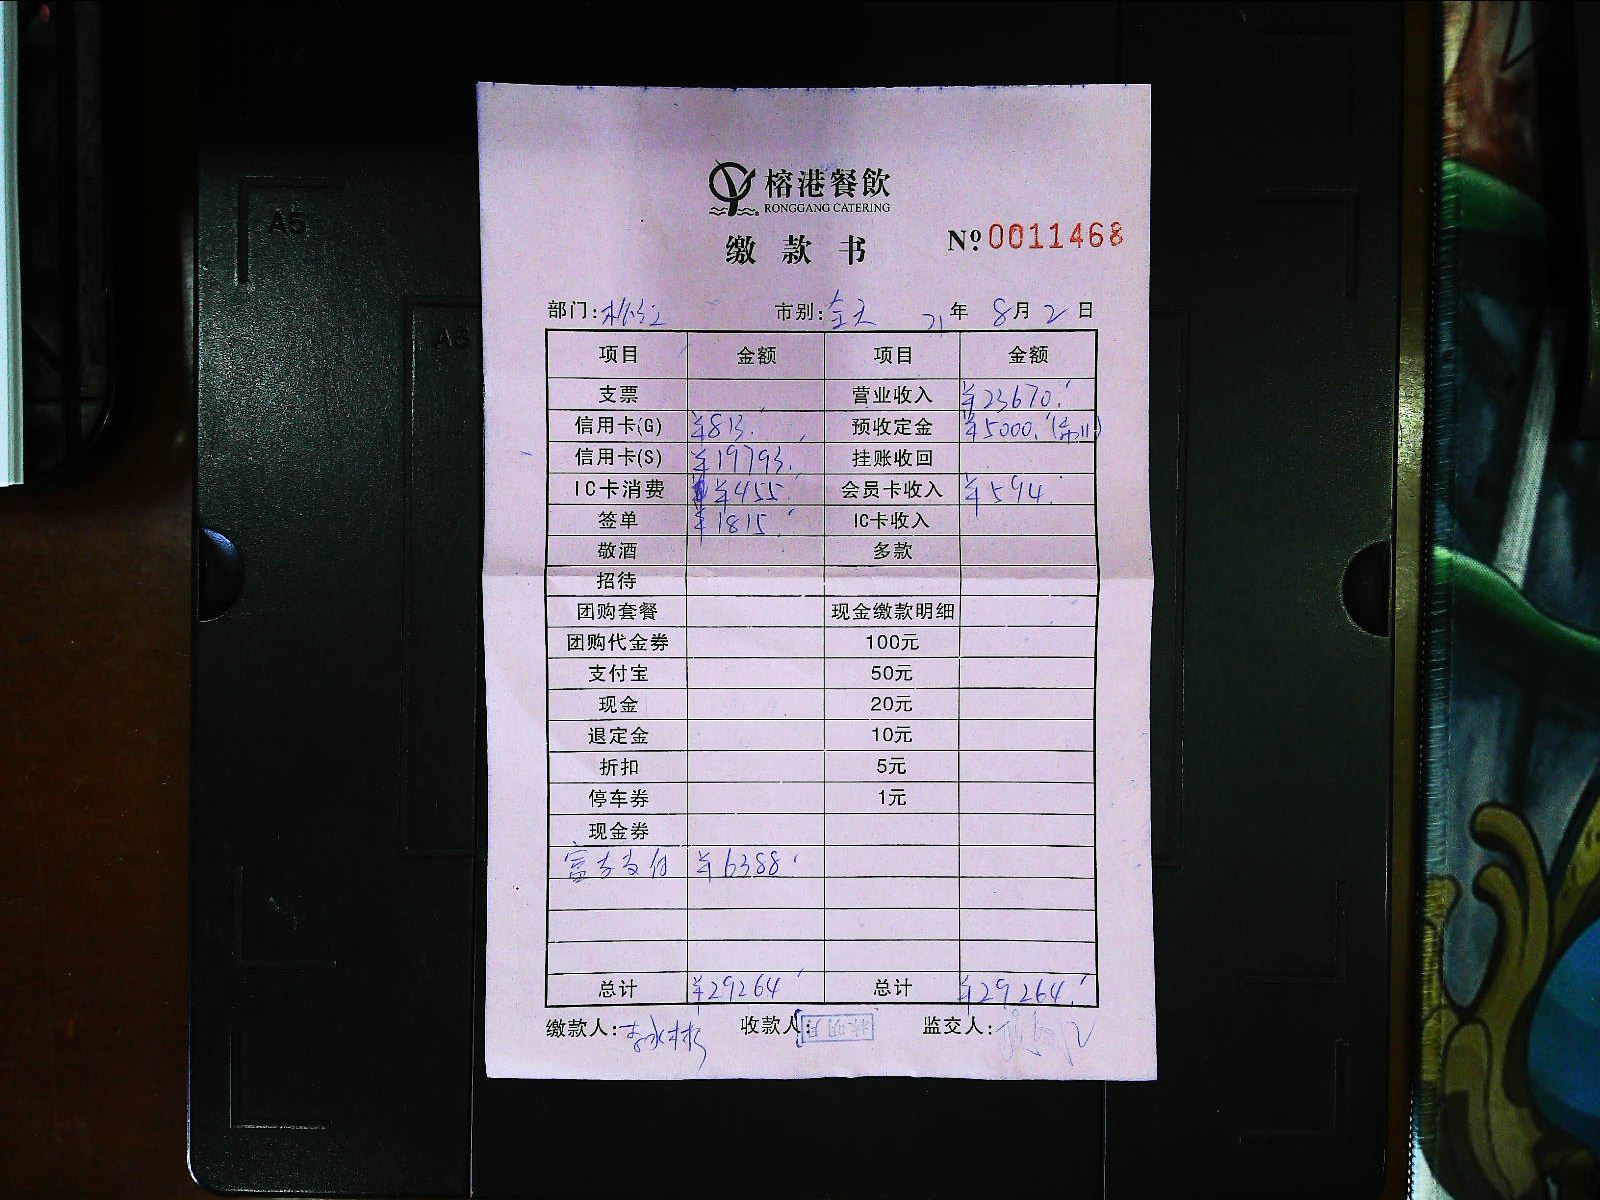 A5
A6
榕港餐飲
RONGGANG CATERING
缴款书
Nº 0011468
部门: 市别:全天 21年 8月2日
项目 金额 项目 金额
支票 营业收入 ¥23670.
信用卡(G) ¥813. 预收定金 ¥5000.
信用卡(S) ¥19793. 挂账收回
IC卡消费 ¥455. 会员卡收入 ¥594.
签单 ¥1815. IC卡收入
敬酒 多款
招待
团购套餐 现金缴款明细
团购代金券 100元
支付宝 50元
现金 20元
退定金 10元
折扣 5元
停车券 1元
现金券
富友支付 ¥6388.
总计 ¥29264 总计 ¥29264.
缴款人:李永彬 收款人: 林明月 监交人: